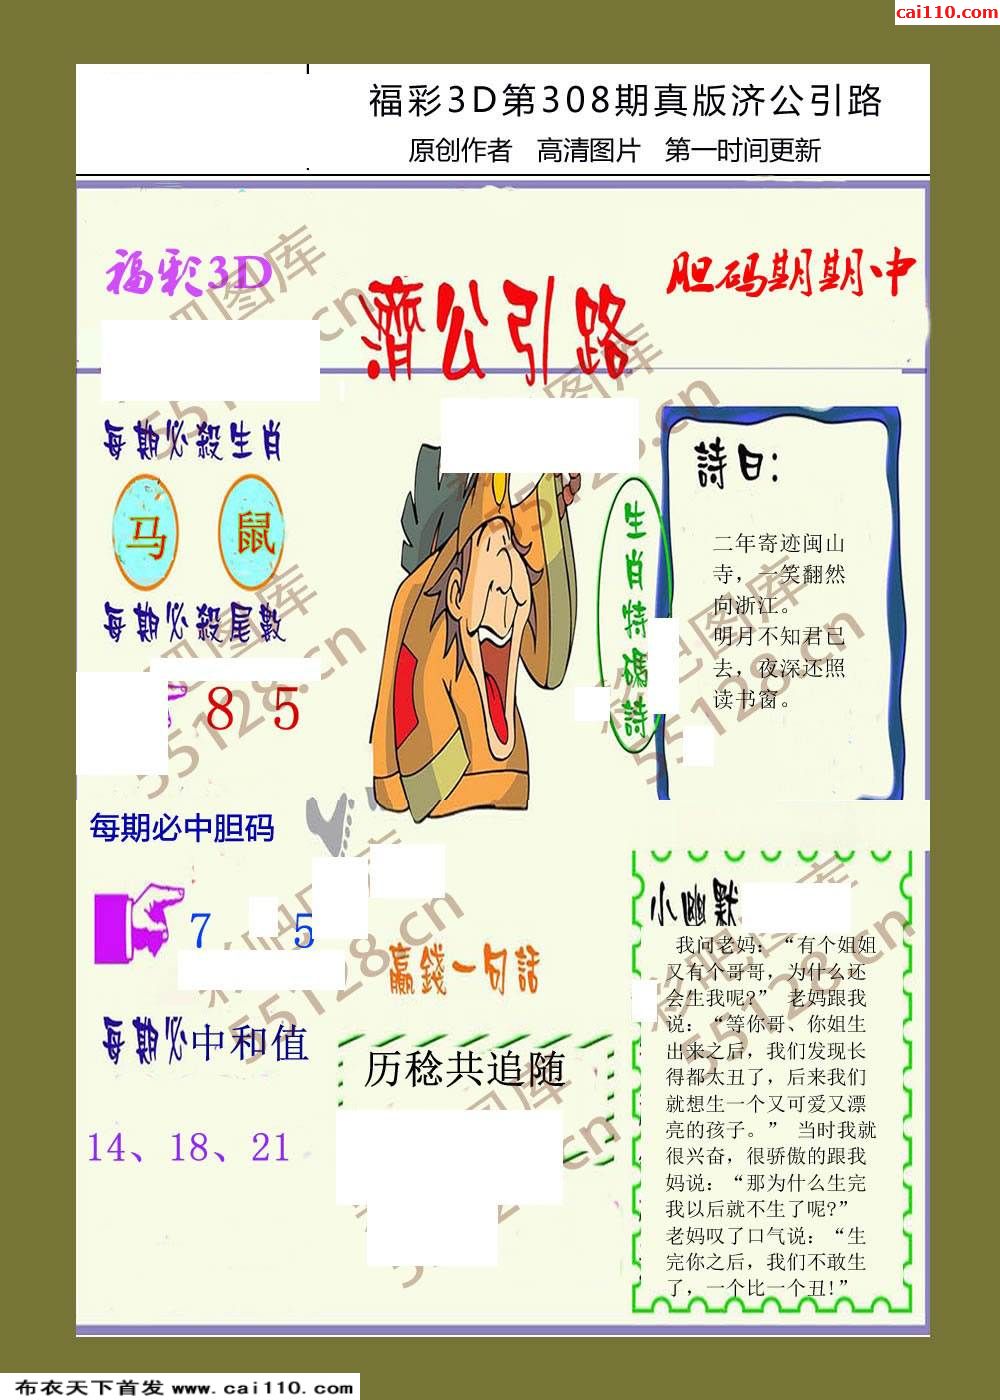 cai110.com
福彩3D第308期真版济公引路
原创作者 高清图片 第一时间更新
福彩3D
濟公引路
胆码期期中
每期必殺生肖
马 鼠
每期必殺尾數
8 5
生肖特碼詩
詩曰：
二年寄迹闽山
寺，一笑翻然
向浙江。
明月不知君已
去，夜深还照
读书窗。
每期必中胆码
7 5
赢錢一句話
历稔共追随
每期必中和值
14、18、21
小幽默
我问老妈：“有个姐姐
又有个哥哥，为什么还
会生我呢?” 老妈跟我
说：“等你哥、你姐生
出来之后，我们发现长
得都太丑了，后来我们
就想生一个又可爱又漂
亮的孩子。” 当时我就
很兴奋，很骄傲的跟我
妈说：“那为什么生完
我以后就不生了呢?”
老妈叹了口气说：“生
完你之后，我们不敢生
了，一个比一个丑!”
彩吧图库
55128.cn
布衣天下首发 www.cai110.com